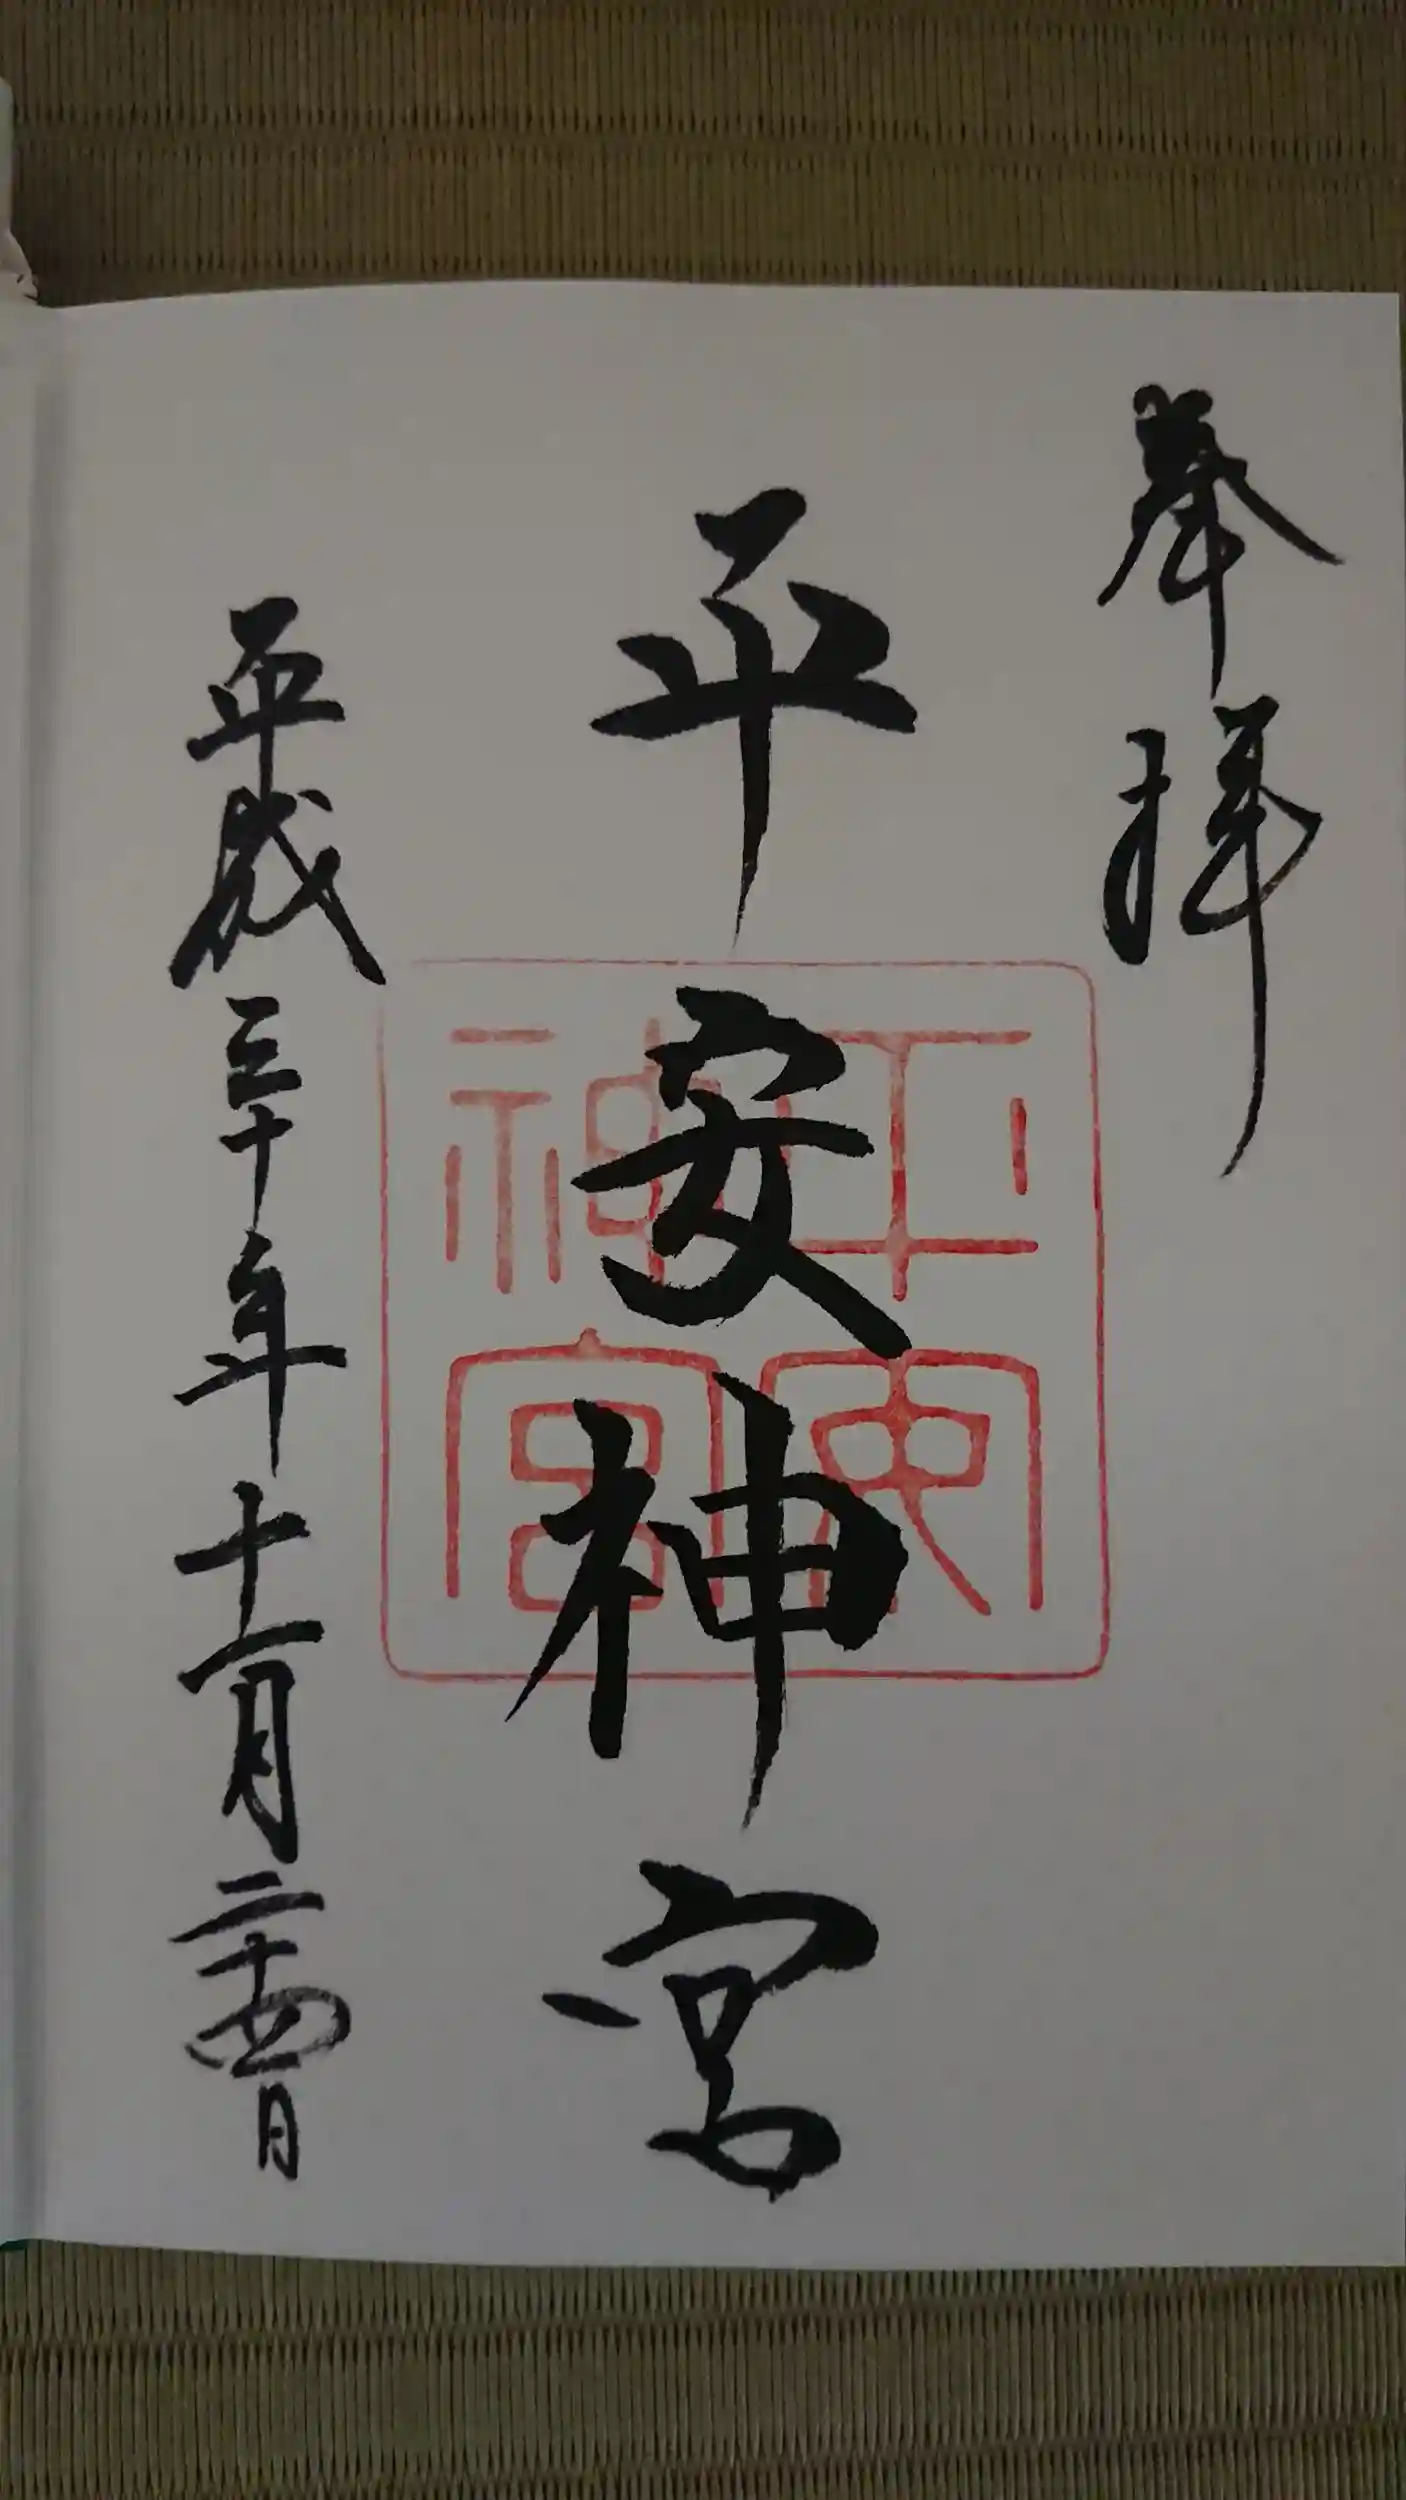 奉拝
平安神宮
平安神宮
平成三十年十一月二十四日